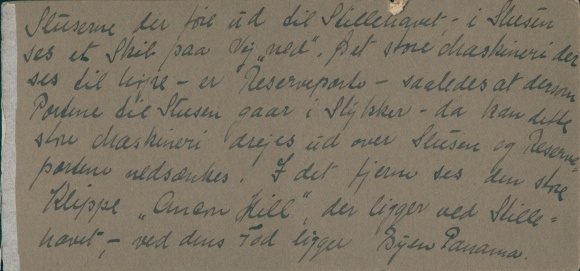 Sluserne der føre ud til Stillehavet, - i Slusen
ses et Skib paa Vej „ned". Det store Maskineri der
ses til højre - er Reserveporte - saaledes at dersom
Portene til Slusen gaar i Stykker - da kan dette
store Maskineri drejes ud over Slusen og Reserve-
portene nedsænkes. I det fjerne ses den store
Klippe „Ancon Hill", der ligger ved Stille-
havet, - ved dens Fod ligger Byen Panama.